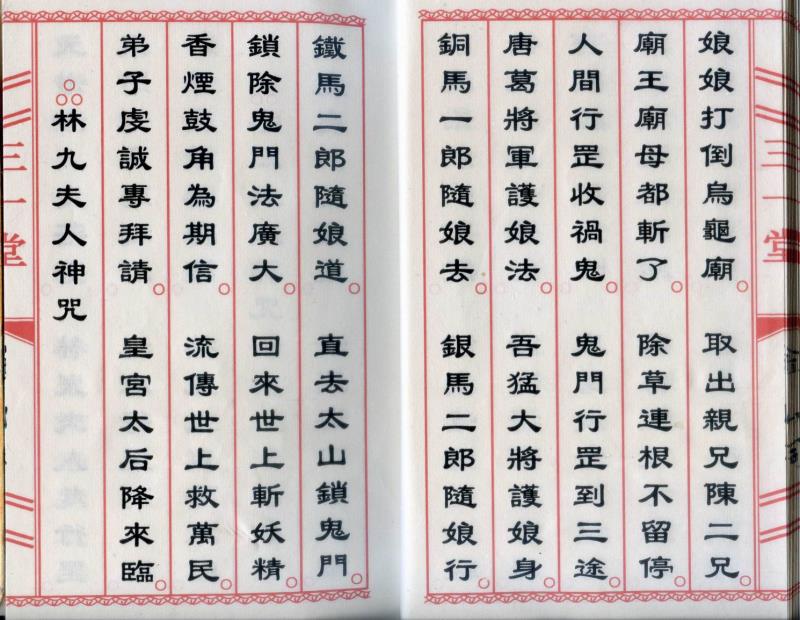 娘娘打倒烏龜廟。取出親兄陳二兄。
廟王廟母都斬了。除草連根不留停。
人間行罡收禍鬼。鬼門行罡到三途。
唐葛將軍護娘法。吾猛大將護娘身。
銅馬一郎隨娘去。銀馬二郎隨娘行。
鐵馬二郎隨娘道。直去太山鎖鬼門。
鎖除鬼門法廣大。回來世上斬妖精。
香煙鼓角為期信。流傳世上救萬民。
弟子虔誠專拜請。皇宮太后降來臨。
林九夫人神咒
三一堂
三一堂